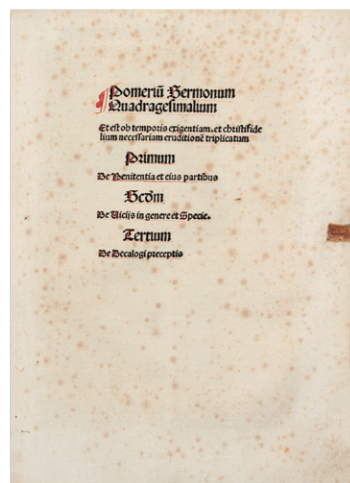 Pomeriū Sermonum
Quadragesimalium
Et est ob temporis exigentiam. et christifide
lium necessariam eruditionē triplicatum
Primum
De Penitentia et eius partibus
Scd̄m
De Uicijs in genere et Specie.
Tertium
De Decalogi preceptis